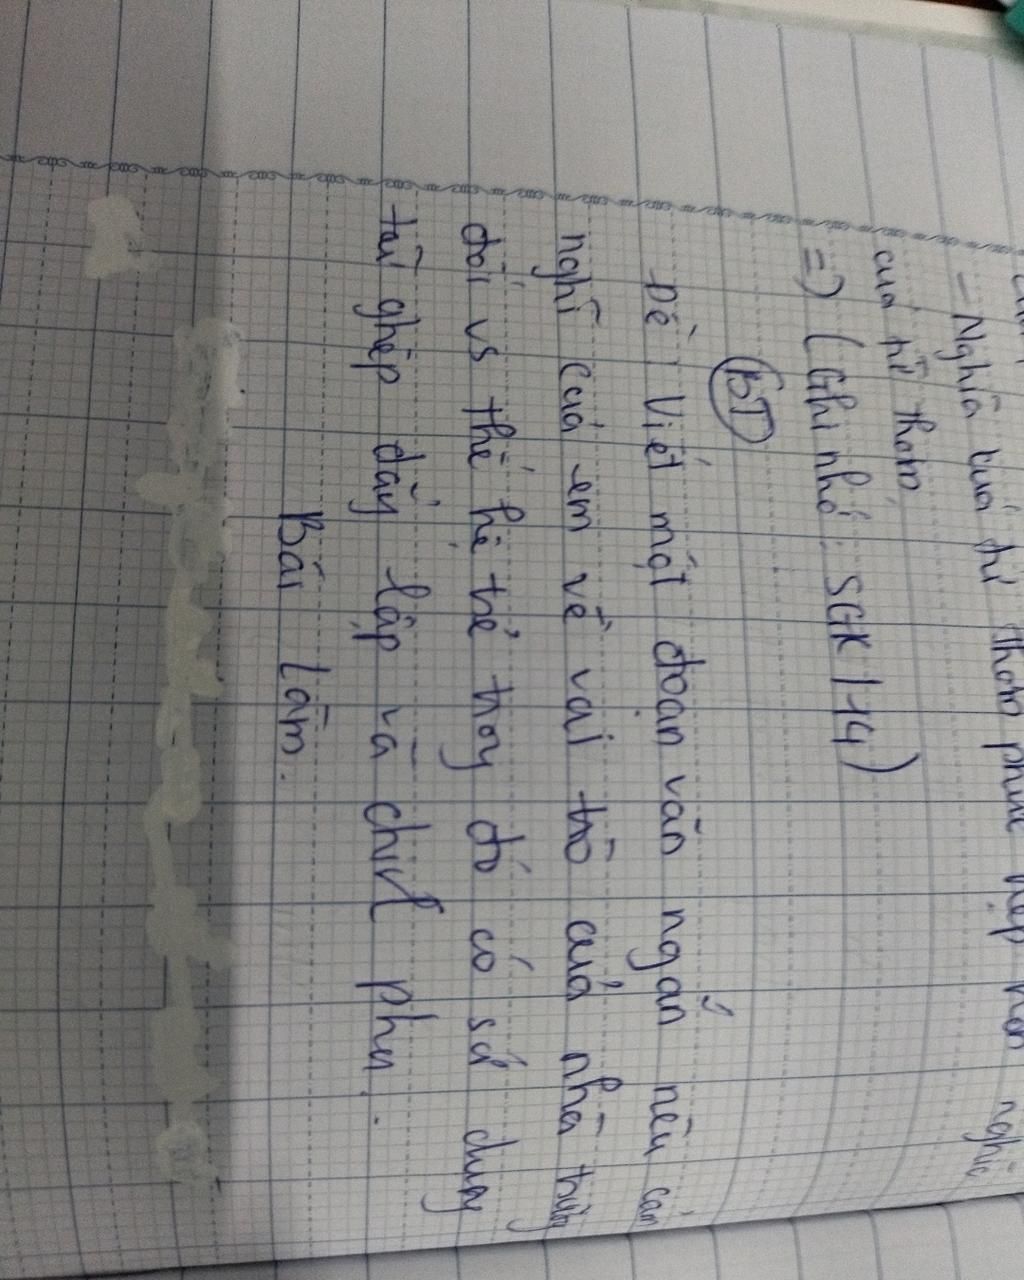 - Nghĩa của từ thơm phức hẹp hơn nghĩa
của từ thơm
=> (Ghi nhớ: SGK / 14)
BT
Đề: Viết một đoạn văn ngắn nêu cảm
nghĩ của em về vai trò của nhà trường
đối vs thế hệ trẻ trog đó có sử dụng
từ ghép đẳng lập và chính phụ.
Bài làm.